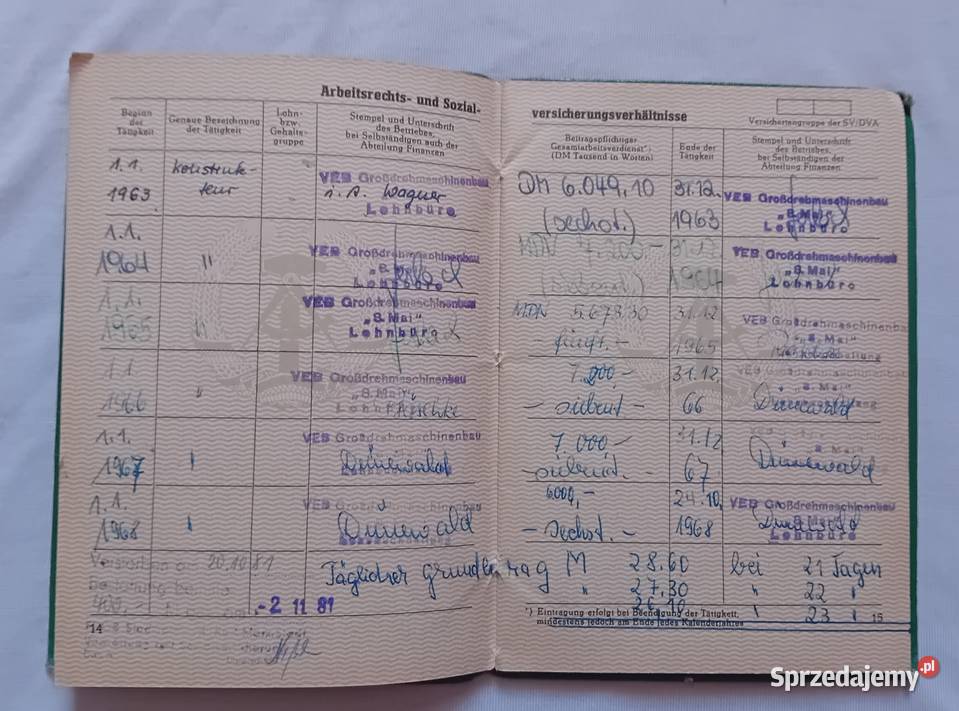 Arbeitsrechts- und Sozial-
Beginn
der
Tätigkeit
Genaue Bezeichnung
der Tätigkeit
Lohn-
bzw.
Gehalts-
gruppe
Stempel und Unterschrift
des Betriebes,
bei Selbständigen auch der
Abteilung Finanzen
1.1.
1963
Konstruk-
teur
VEB Großdrehmaschinenbau
i.A. Wagner
Lohnbüro
1.1.
1964
"
VEB Großdrehmaschinenbau
„8. Mai"
Lohnbüro
1.1.
1965
"
VEB Großdrehmaschinenbau
„8. Mai"
Lohnbüro
1.1
1966
"
VEB Großdrehmaschinenbau
„8. Mai"
1.1.
1967
VEB Großdrehmaschinenbau
Dünewald
1.1.
1968
VEB Großdrehmaschinenbau
Dünewald
Verstorben am 20.10.81
400,-
- 2 11 81
14
versicherungsverhältnisse
Versichertengruppe der SV/DVA
Beitragspflichtiger
Gesamtarbeitsverdienst*)
(DM Tausend in Worten)
Ende der
Tätigkeit
Stempel und Unterschrift
des Betriebes,
bei Selbständigen der
Abteilung Finanzen
DM 6.049,10
(sechst.)
31.12.
1963
VEB Großdrehmaschinenbau
„8. Mai"
Lohnbüro
MDN 7.200.-
31.12
1964
VEB Großdrehmaschinenbau
„8. Mai"
Lohnbüro
MDN 5.678,30
- fünft. -
31.12
1965
VEB Großdrehmaschinenbau
„8. Mai"
7.200 -
- siebent -
31.12.
66
VEB Großdrehmaschinenbau
„8. Mai"
Dünewald
7.000 -
- siebent. -
31.12
67
Dünewald
6000,-
- sechst. -
24.10.
1968
VEB Großdrehmaschinenbau
Dünewald
Lohnbüro
Täglicher Grundbetrag M 28.60 bei 21 Tagen
" 27,30 " 22 "
" 26,10 " 23 "
*) Eintragung erfolgt bei Beendigung der Tätigkeit,
mindestens jedoch am Ende jedes Kalenderjahres
15
Sprzedajemy.pl